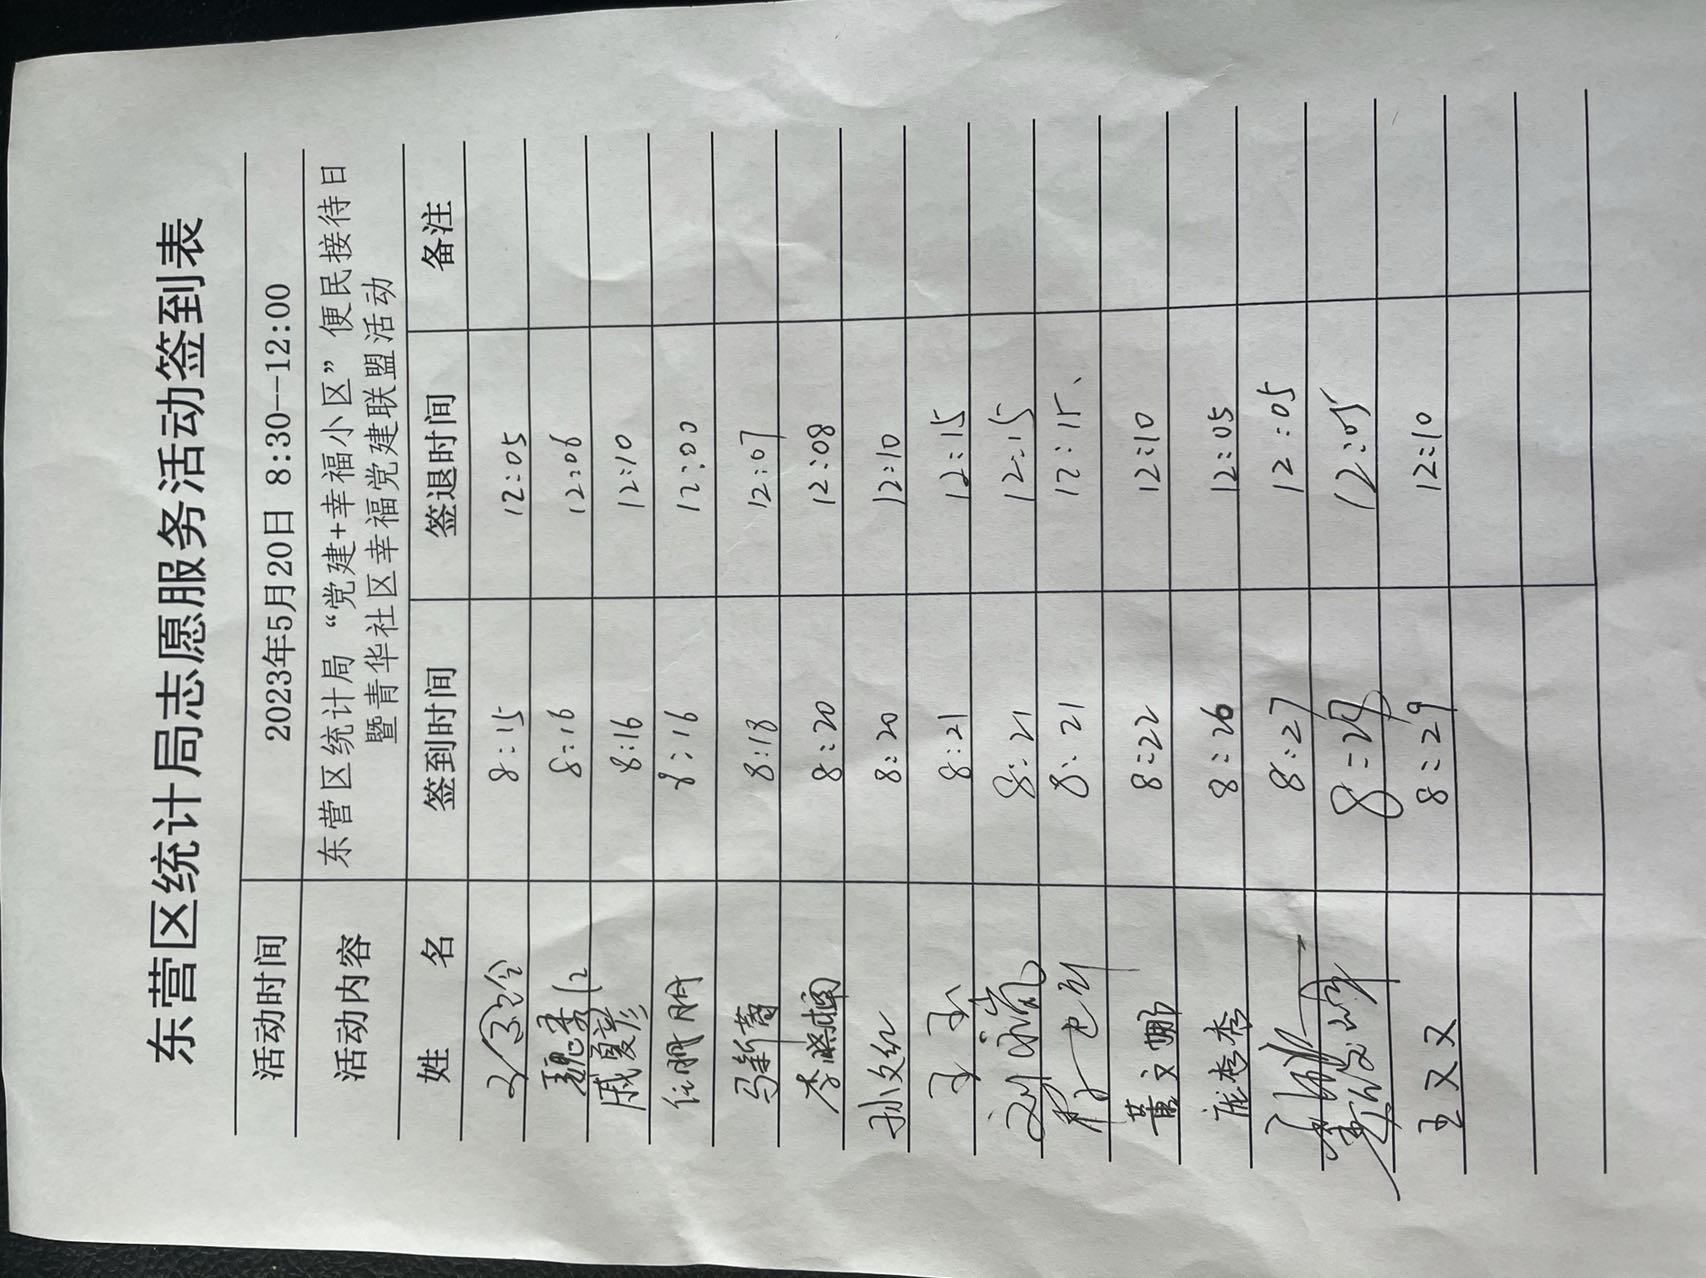 东营区统计局志愿服务活动签到表
活动时间 2023年5月20日 8:30--12:00
活动内容 东营区统计局 “党建+幸福小区” 便民接待日
暨青华社区幸福党建联盟活动
姓 名 签到时间 签退时间 备注
8:15 12:05
8:16 12:06
戚夏彦 8:16 12:10
任朋朋 8:16 12:00
马新蕾 8:18 12:07
李曦楠 8:20 12:08
孙文红 8:20 12:10
王玉 8:21 12:15
刘岚 8:21 12:15
8:21 12:15、
董文娜 8:22 12:10
庞秀秀 8:26 12:05
8:27 12:05
12:05
王双双 8:29 12:10